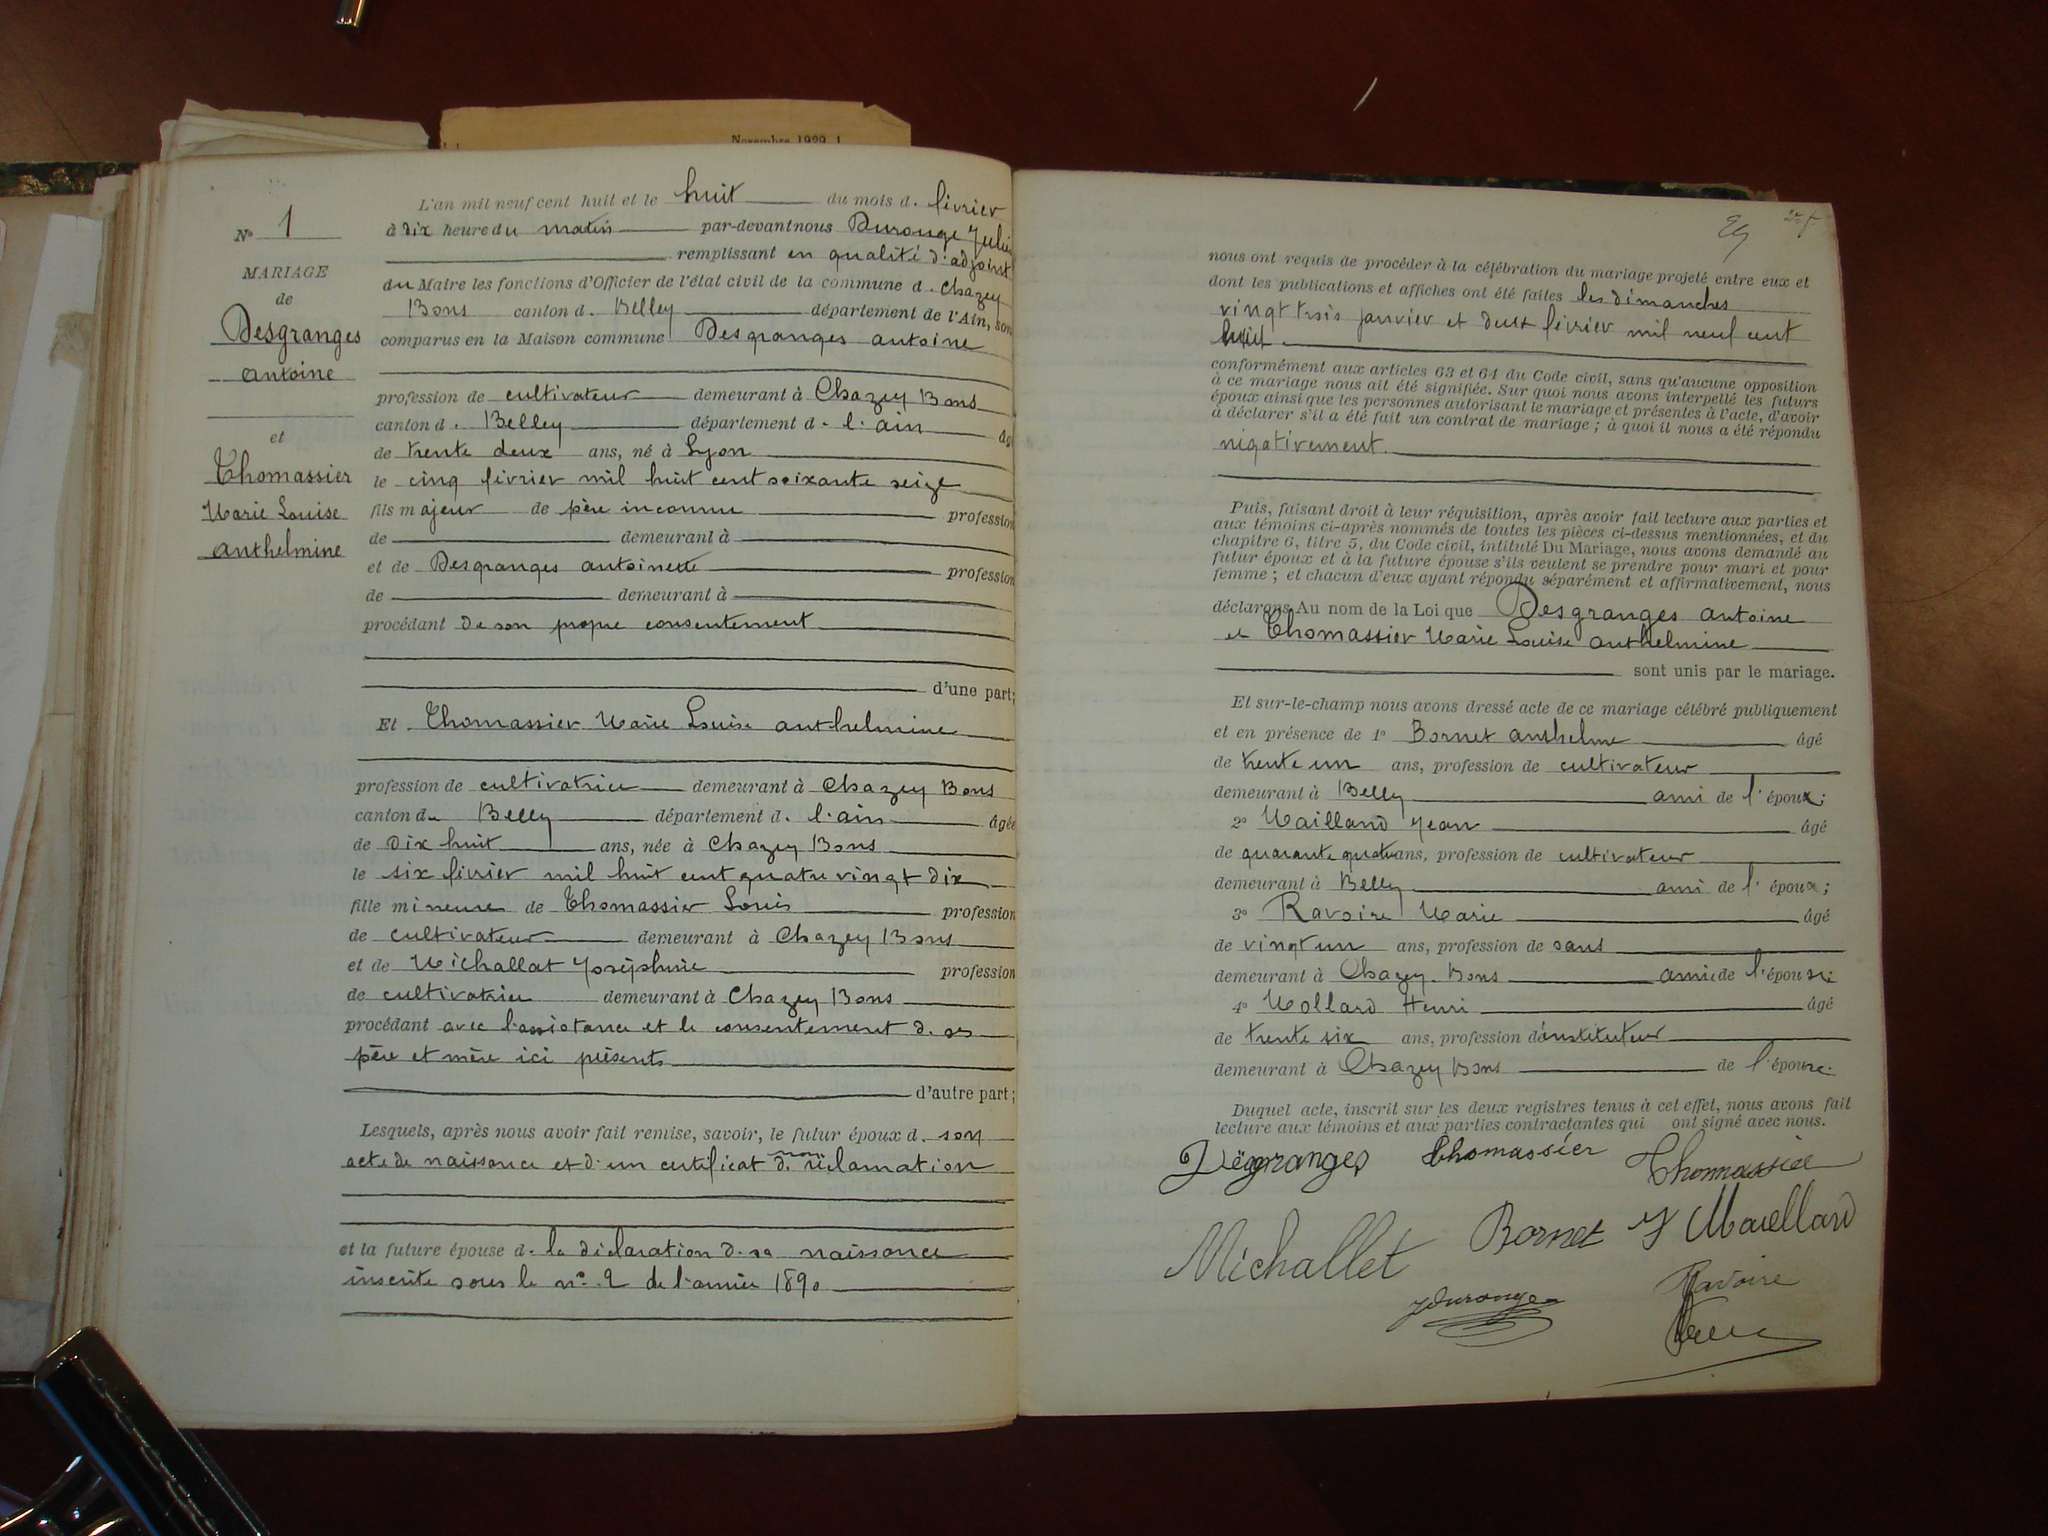 Novembre 1929
N° 1
MARIAGE
de
Desgranges
antoine
et
Thomassier
Marie Louise
anthelmine
L'an mil neuf cent huit et le huit du mois d. février
à dix heure du matin par-devant nous Durouge Jules
remplissant en qualité d'adjoint
du Maire les fonctions d'Officier de l'état civil de la commune d. Chazey
Bons canton d. Belley département de l'Ain, sont
comparus en la Maison commune Desgranges antoine
profession de cultivateur demeurant à Chazey Bons
canton d. Belley département d. l'ain âgé
de trente deux ans, né à Lyon
le cinq février mil huit cent soixante seize
fils majeur de père inconnu profession
de demeurant à
et de Desgranges antoinette profession
de demeurant à
procédant de son propre consentement
d'une part;
Et Thomassier Marie Louise anthelmine
profession de cultivatrice demeurant à Chazey Bons
canton d. Belley département d. l'ain âgée
de dix huit ans, née à Chazey Bons
le six février mil huit cent quatre vingt dix
fille mineure de Thomassier Louis profession
de cultivateur demeurant à Chazey Bons
et de Michallat Joséphine profession
de cultivatrice demeurant à Chazey Bons
procédant avec l'assistance et le consentement d. ses
père et mère ici présents
d'autre part;
Lesquels, après nous avoir fait remise, savoir, le futur époux d. son
acte de naissance et d'un certificat d. non réclamation
et la future épouse d. la déclaration d. sa naissance
inscrite sous le n° 2 de l'année 1890
nous ont requis de procéder à la célébration du mariage projeté entre eux et
dont les publications et affiches ont été faites les dimanches
vingt trois janvier et deux février mil neuf cent
huit
conformément aux articles 63 et 64 du Code civil, sans qu'aucune opposition
à ce mariage nous ait été signifiée. Sur quoi nous avons interpellé les futurs
époux ainsi que les personnes autorisant le mariage et présentes à l'acte, d'avoir
à déclarer s'il a été fait un contrat de mariage; à quoi il nous a été répondu
négativement.
Puis, faisant droit à leur réquisition, après avoir fait lecture aux parties et
aux témoins ci-après nommés de toutes les pièces ci-dessus mentionnées, et du
chapitre 6, titre 5, du Code civil, intitulé Du Mariage, nous avons demandé au
futur époux et à la future épouse s'ils veulent se prendre pour mari et pour
femme; et chacun d'eux ayant répondu séparément et affirmativement, nous
déclarons Au nom de la Loi que Desgranges antoine
et Thomassier Marie Louise anthelmine
sont unis par le mariage.
Et sur-le-champ nous avons dressé acte de ce mariage célébré publiquement
et en présence de 1° Bornet anthelme âgé
de trente un ans, profession de cultivateur
demeurant à Belley ami de l'époux;
2° Mailland Jean âgé
de quarante quatre ans, profession de cultivateur
demeurant à Belley ami de l'époux;
3° Ravoire Marie âgé
de vingt un ans, profession de sans
demeurant à Chazey. Bons amie de l'épouse
4° Mollard Henri âgé
de trente six ans, profession d'instituteur
demeurant à Chazey Bons de l'épouse.
Duquel acte, inscrit sur les deux registres tenus à cet effet, nous avons fait
lecture aux témoins et aux parties contractantes qui ont signé avec nous.
Désgranges Thomassiér Thomassier
Michallet Bornet J Maiellard
JDurouge Ravoire